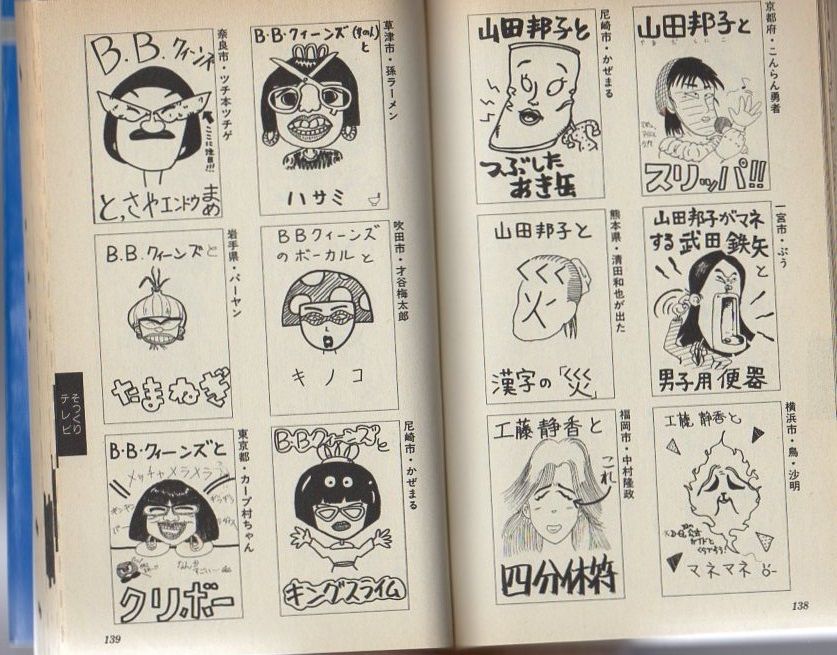 京都府・こんらん勇者
山田邦子と
やまだくにこ
スリッパ!!
尼崎市・かぜまる
山田邦子と
つぶした
あき缶
一宮市・ぷう
山田邦子がマネ
する武田鉄矢
と
男子用便器
熊本県・清田和也が出た
山田邦子と
くくく
火
漢字の「災」
横浜市・鳥・沙明
工藤静香と
マネマネ
福岡市・中村隆政
工藤静香と
これ
四分休符
138
草津市・孫ラーメン
B・B・クィーンズ(すのん)
と
ハサミ
奈良市・ツチ本ツチゲ
B.B.クィーンズ
ここに注目!!!
と,さやエンドウまめ
吹田市・才谷梅太郎
BBクィーンズ
のボーカルと
キノコ
岩手県・バーヤン
B.B.クィーンズと
たまねぎ
尼崎市・かぜまる
B・Bクィーンズと
キングスライム
東京都・カープ村ちゃん
B・B・クィーンズと
メッチャメラメラう
クリボー
そっくり
テレビ
139